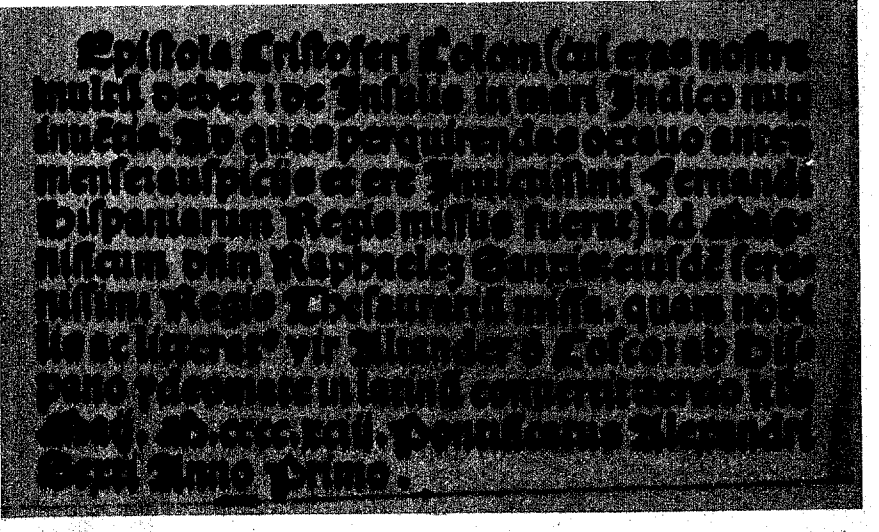 Epistola Cristoferi Colom (cui etas nostra
multū debet: de Insulis in mari Indico nup
inuētis. Ad quas perquirendas octauo antea
mense: auspiciis et ere Inuictissimi Fernandi
Hispaniarum Regis missus fuerat) ad Mag-
nificum dñm Raphaelez Sanxis: eiusdē sere-
nissimi Regis Thesaurariū missa. quam nobi
lis ac litterat⁹ vir Aliander d̄ Cosco: ab His-
pano ydeomate in latinū conuertit: tercio kl's
Maij. M.cccc.xciij. Pontificatus Alexandri
Sexti Anno Primo.